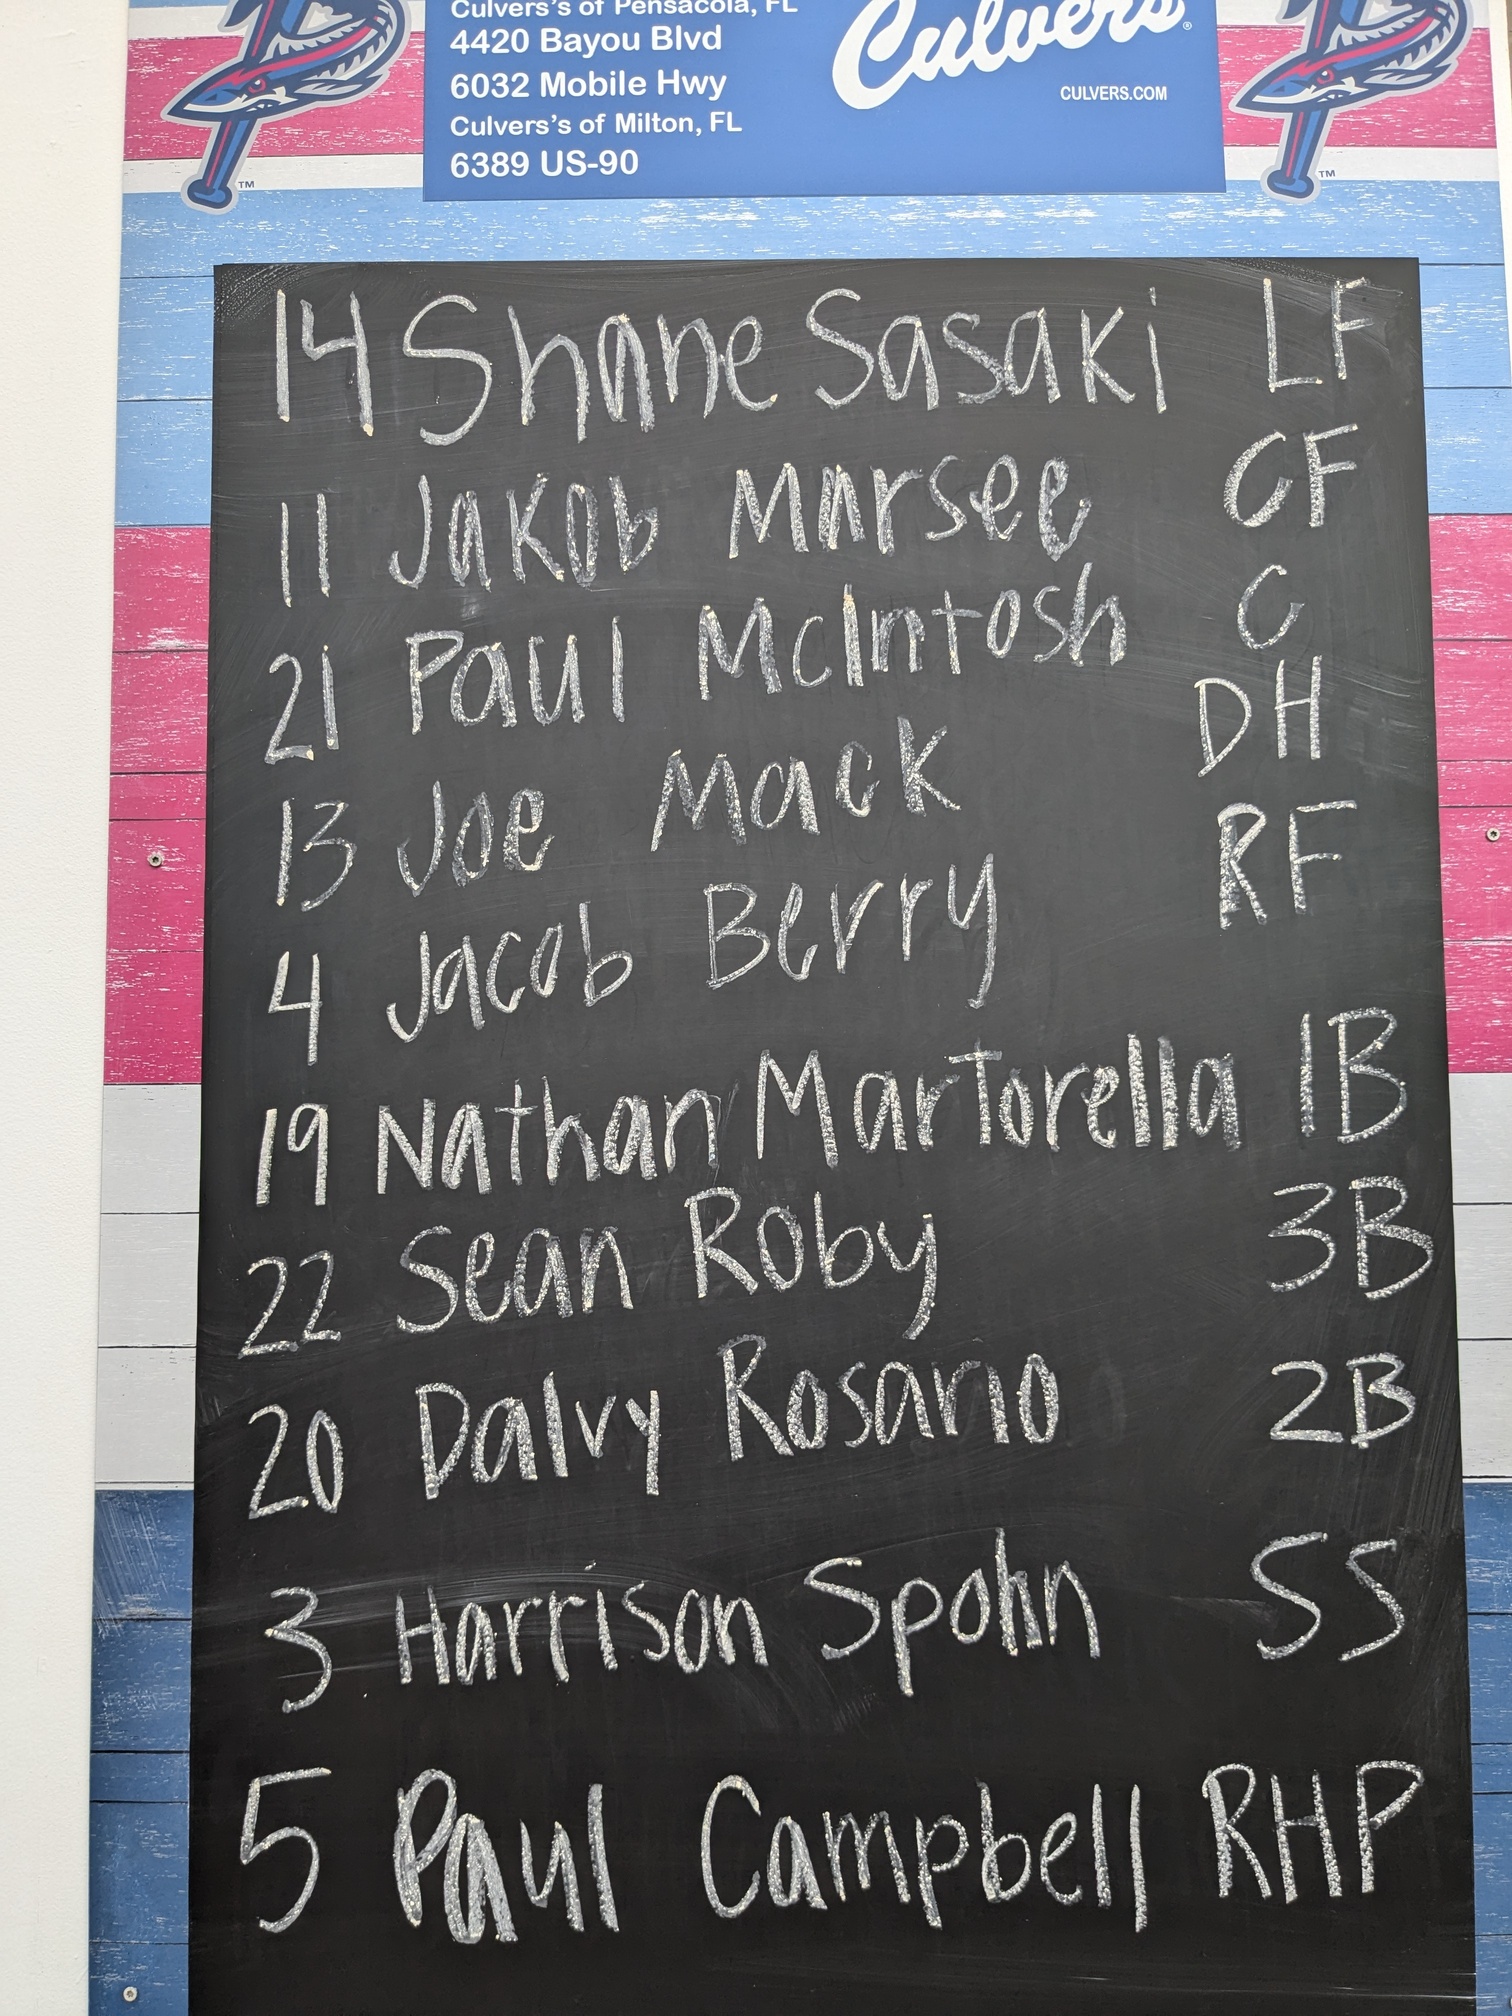 Culvers's of Pensacola, FL
4420 Bayou Blvd
6032 Mobile Hwy
Culvers's of Milton, FL
6389 US-90
Culver's®
CULVERS.COM
P
TM
P
TM
14 Shane Sasaki LF
11 Jakob Marsee CF
21 Paul McIntosh C
13 Joe Mack DH
4 Jacob Berry RF
19 Nathan Martorella 1B
22 Sean Roby 3B
20 Dalvy Rosario 2B
3 Harrison Spohn SS
5 Paul Campbell RHP